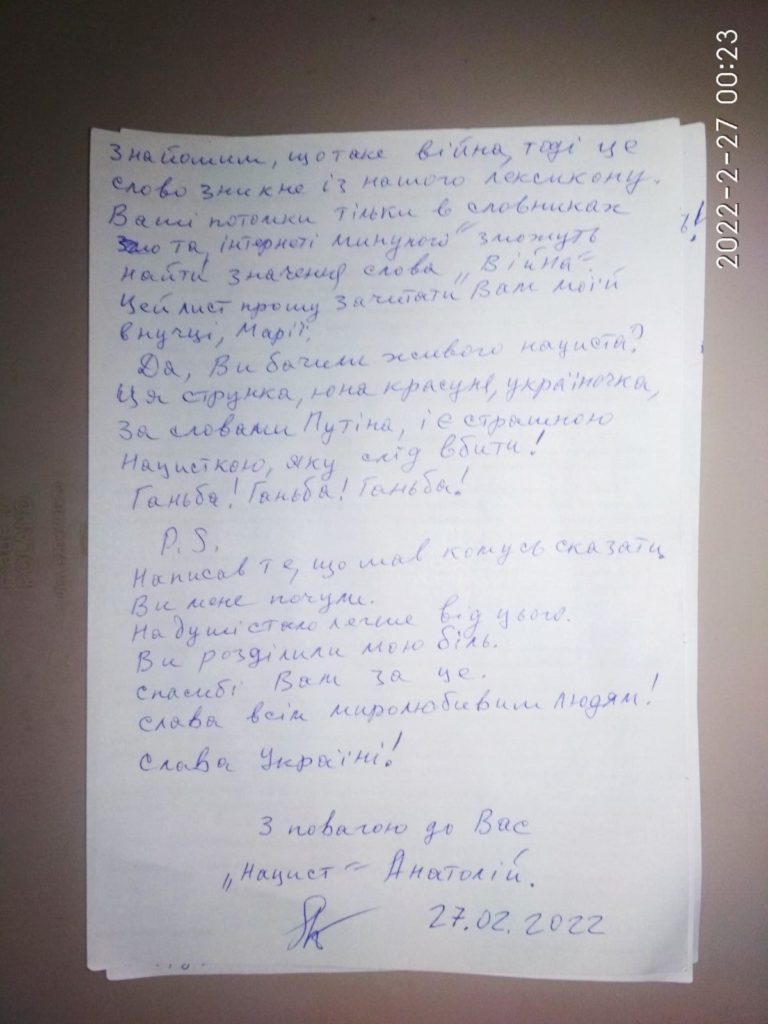 Знайомим, що таке війна, тоді це
слово зникне із нашого лексикону.
Ваші потомки тільки в словниках
та „інтернеті минулого" зможуть
найти значення слова „Війна".
Цей лист прошу зачитати Вам моїй
внучці, Марії.
Да, Ви бачили живого нациста?
Ця струнка, юна красуня, україночка,
За словами Путіна, і є страшною
Нацисткою, яку слід вбити!
Ганьба! Ганьба! Ганьба!
P.S.
Написав те, що мав комусь сказати
Ви мене почули.
На душі стало легше від цього.
Ви розділили мою біль.
спасибі Вам за це.
слава всім миролюбивим людям!
слава Україні!
З повагою до Вас
„Нацист" Анатолій.
27.02.2022
2022-2-27 00:23